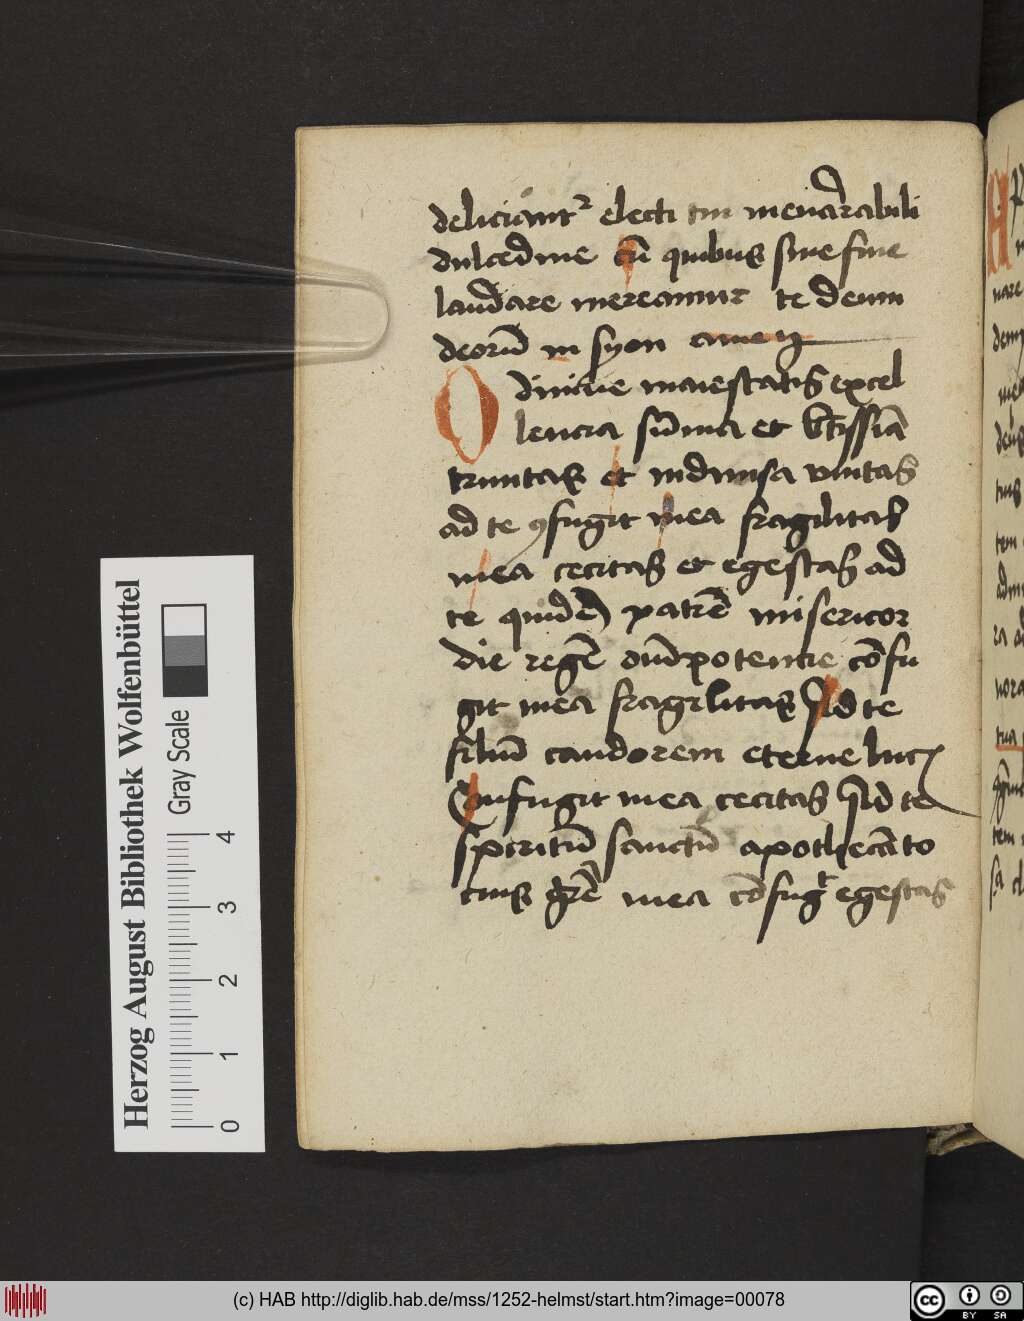 deliciant² electi tui inenarrabili
dulcedine cū quibus sine fine
laudare mereamur te deum
deorū in syon amen
O diuine maiestatis excel
lencia sūma et btissiā
trinitas et indiuisa vnitas
ad te ꝯfugit mea fragilitas
mea cecitas et egestas ad
te quidē patrē misericor
die regē oīpotencie cōfu
git mea fragilitas Ad te
filiū candorem eterne luc
Confugit mea cecitas Ad te
spiritū sanctū apothecā to
cius grē mea cōfugt egestas
Herzog August Bibliothek Wolfenbüttel
Gray Scale
0 1 2 3 4
(c) HAB http://diglib.hab.de/mss/1252-helmst/start.htm?image=00078
cc BY SA